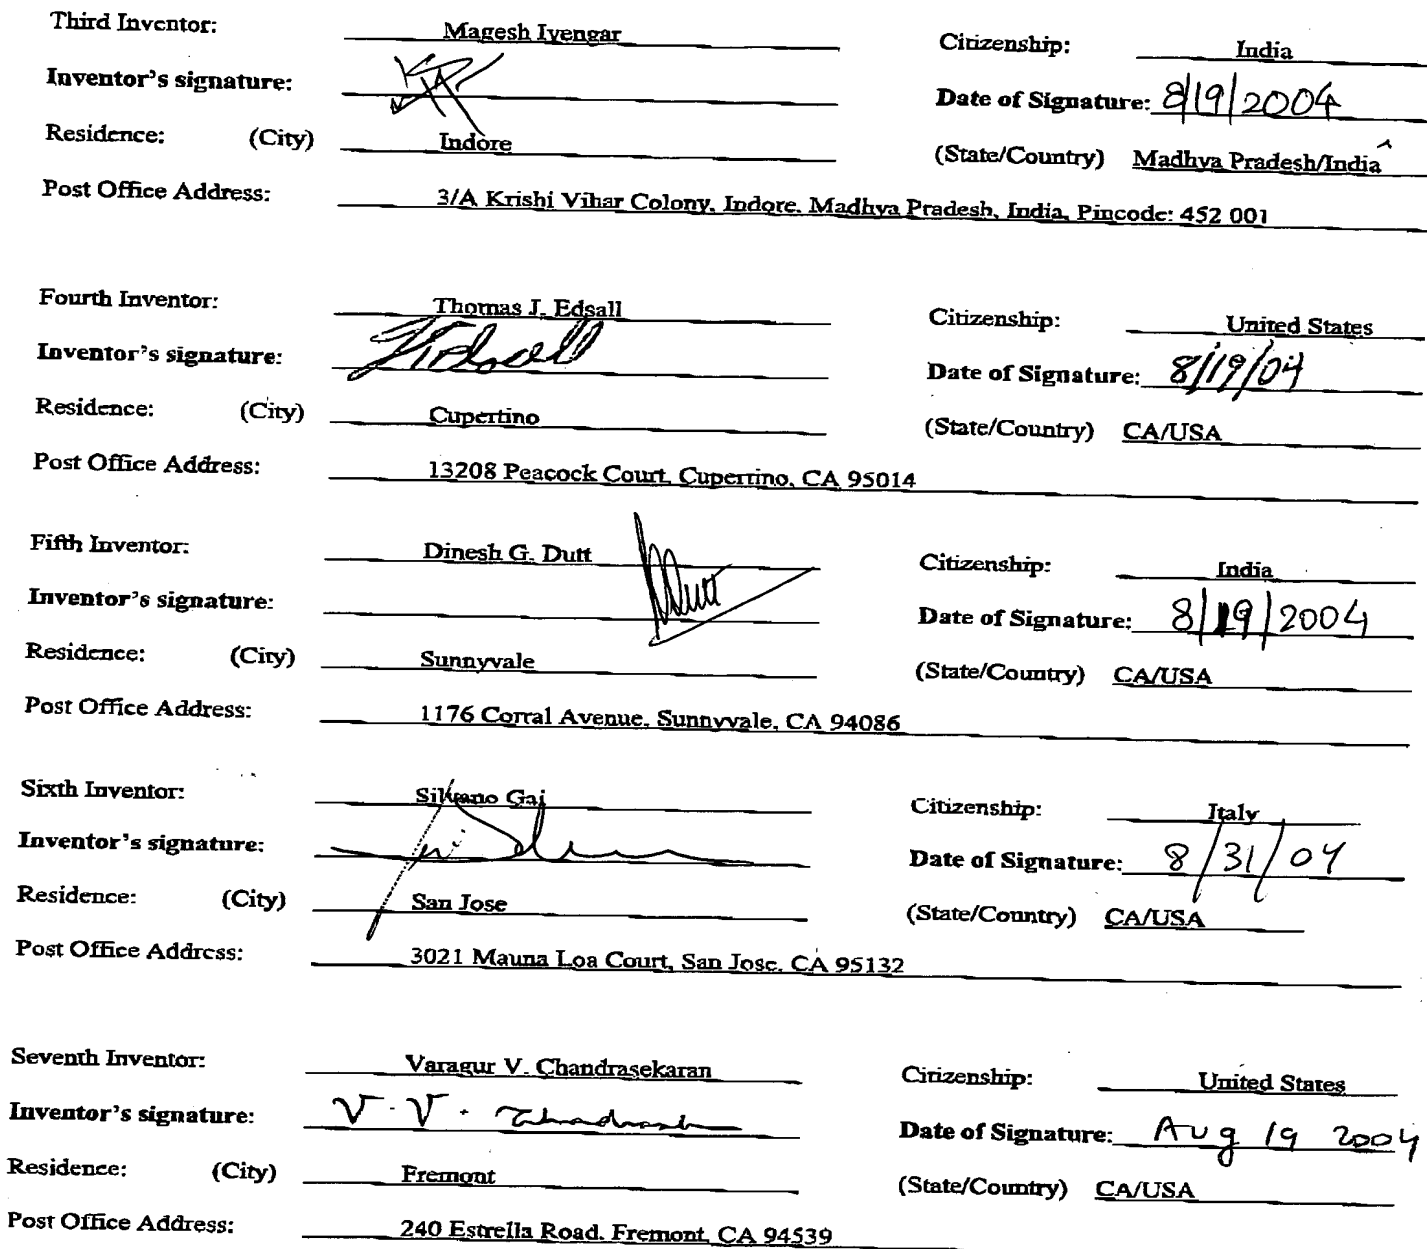 Third Inventor: Magesh Iyengar Citizenship: India
Inventor's signature: Date of Signature: 8/19/2004
Residence: (City) Indore (State/Country) Madhya Pradesh/India
Post Office Address: 3/A Krishi Vihar Colony, Indore, Madhya Pradesh, India, Pincode: 452 001
Fourth Inventor: Thomas J. Edsall Citizenship: United States
Inventor's signature: TEdsall Date of Signature: 8/19/04
Residence: (City) Cupertino (State/Country) CA/USA
Post Office Address: 13208 Peacock Court, Cupertino, CA 95014
Fifth Inventor: Dinesh G. Dutt Citizenship: India
Inventor's signature: Dutt Date of Signature: 8/19/2004
Residence: (City) Sunnyvale (State/Country) CA/USA
Post Office Address: 1176 Corral Avenue, Sunnyvale, CA 94086
Sixth Inventor: Silvano Gai Citizenship: Italy
Inventor's signature: Date of Signature: 8/31/04
Residence: (City) San Jose (State/Country) CA/USA
Post Office Address: 3021 Mauna Loa Court, San Jose, CA 95132
Seventh Inventor: Varagur V. Chandrasekaran Citizenship: United States
Inventor's signature: V. V. Date of Signature: Aug 19 2004
Residence: (City) Fremont (State/Country) CA/USA
Post Office Address: 240 Estrella Road, Fremont, CA 94539